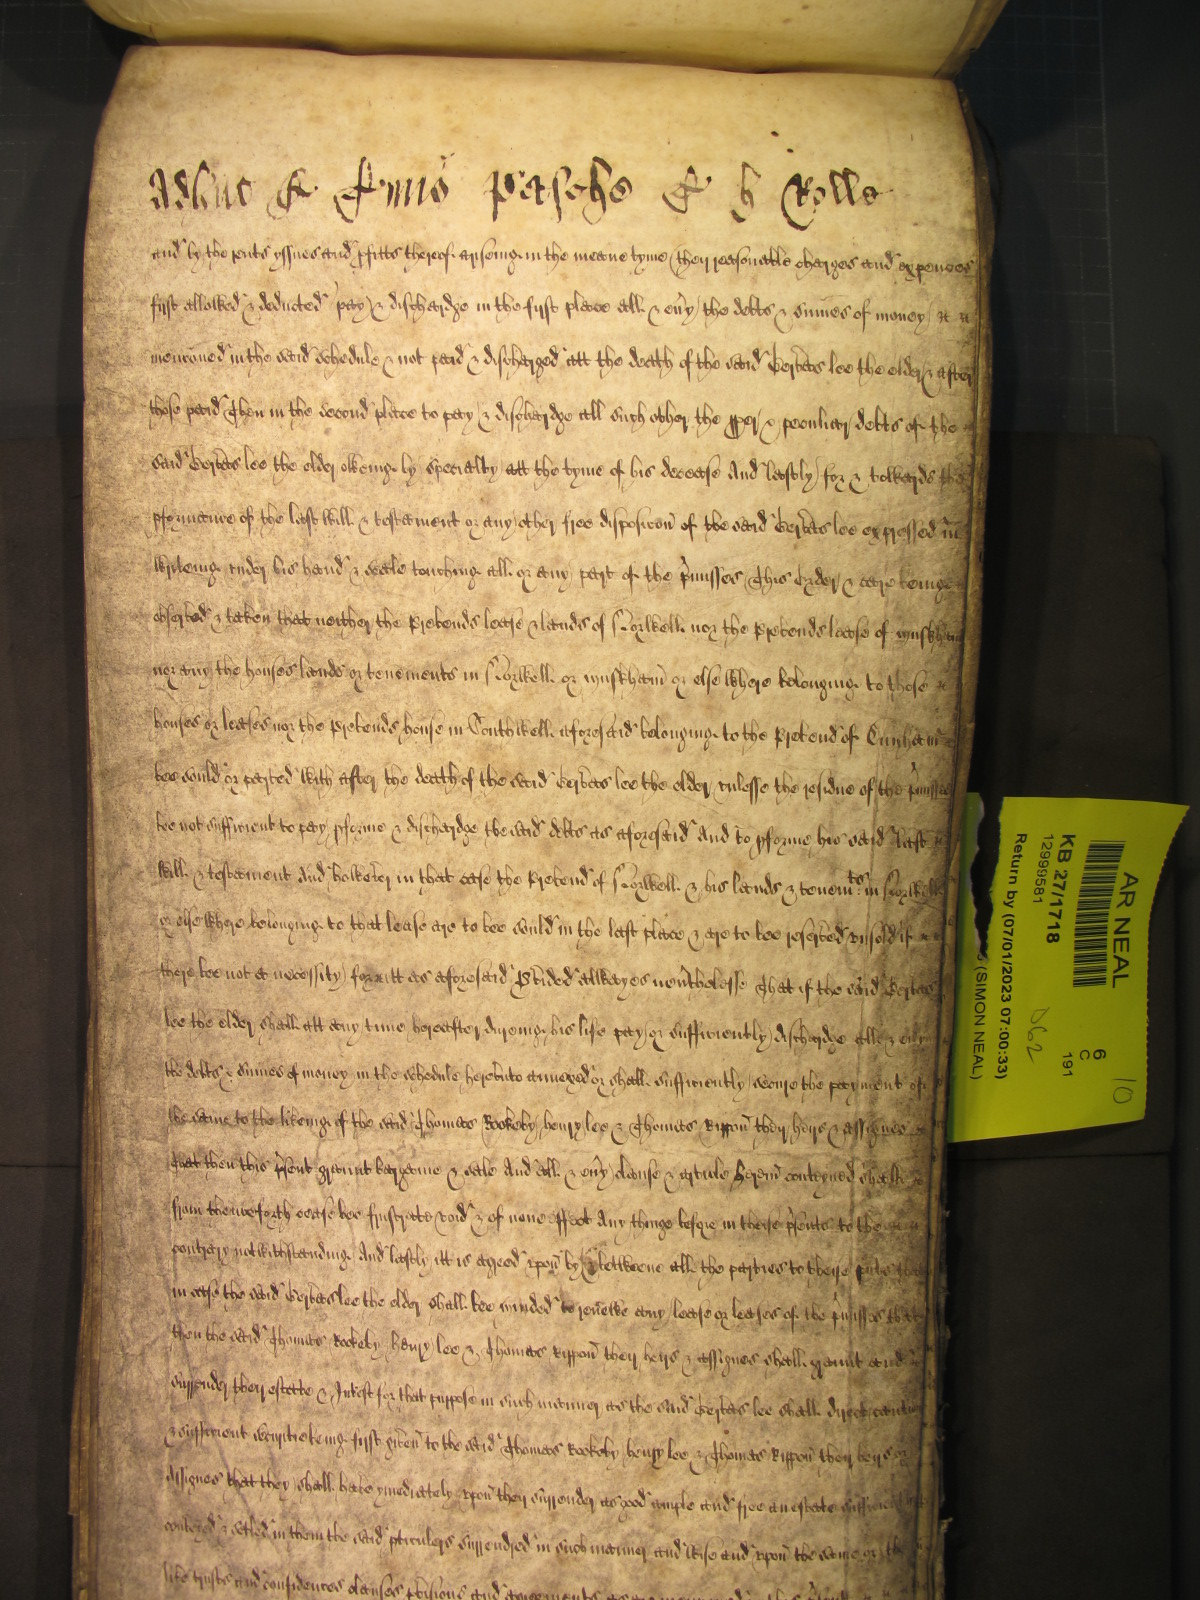 Adhuc de Termino Pasche
and by the rents yssues and pfitts thereof ariseing in the meane tyme (their reasonable charges and expences
first allowed & deducted) pay & discharge in the first place all & eūy the debts & sumes of money
mencōned in the said schedule & not paid & discharged att the death of the said Gervas lee the elder & after
those paid Then in the second place to pay & discharge all such other the pper & peculiar debts of the
said Gervas lee the elder oweing by specialty att the tyme of his decease And lastly for & towards the
pformance of the last will & testament or any other free disposicoñ of the said Gervas lee expressed in
writeing under his hand & seale touching all or any part of the p'misses This order & care being
observed & taken that neither the Prebends lease & lands of Norwell nor the Prebends lease of Muskham
nor any the houses lands or tenements in Norwell or Muskham or else where belonging to those
houses or leases nor the Prebends house in Southwell aforesaid belonging to the Prebend of Dunham
bee sould or parted with after the death of the said Gervas lee the elder unlesse the residue of the p'misses
bee not sufficient to pay pforme & discharge the said debts as aforesaid And to pforme his said last
will & testament And bolketer in that case the Prebend of Norwell & his lands & tenemts in Norwell
or else where belonging to that lease are to bee sould in the last place & are to bee reserved unsold if
there bee not a necessity for itt as aforesaid Pvided allwayes nev'thelesse That if the said Gervas
lee the elder shall att any time hereafter dureing his life pay or sufficiently discharge all & eūy
the debts & sumes of money in the schedule hereunto annexed or shall sufficiently secure the payment of
the same to the likeing of the said Thomas Rookeby henry lee & Thomas Rippon their heirs & assignes
That then this p'sent graunt bargaine & sale And all & eūy clause & article herein conteyned shall
from thenceforth cease bee frustrate void & of none effect Any thinge before in theise p'sents to the
contrary notwithstanding And lastly itt is agreed upon by & betweene all the parties to theise p'nts that
in case the said Gervas lee the elder shall bee minded to renewe any lease or leases of the p'misses that
then the said Thomas Rookeby henry lee & Thomas Rippon their heirs & assignes shall graunt and
surrender their estate & Interest for that purpose in such manner as the said Gervas lee shall direct
& sufficient securitie being first given to the said Thomas Rookeby henry lee & Thomas Rippon their heirs or
assignes that they shall have ymediately upon their surrender as good ample and free an estate
conveyed & setled in them the said pticulers surrendred in such manner and wise and upon the same or the
like trusts and confidences clauses pvisions and agreements
AR NEAL
KB 27/1718
12999581
Return by (07/01/2023 07:00:33)
(SIMON NEAL)
6
C
191
D62
10